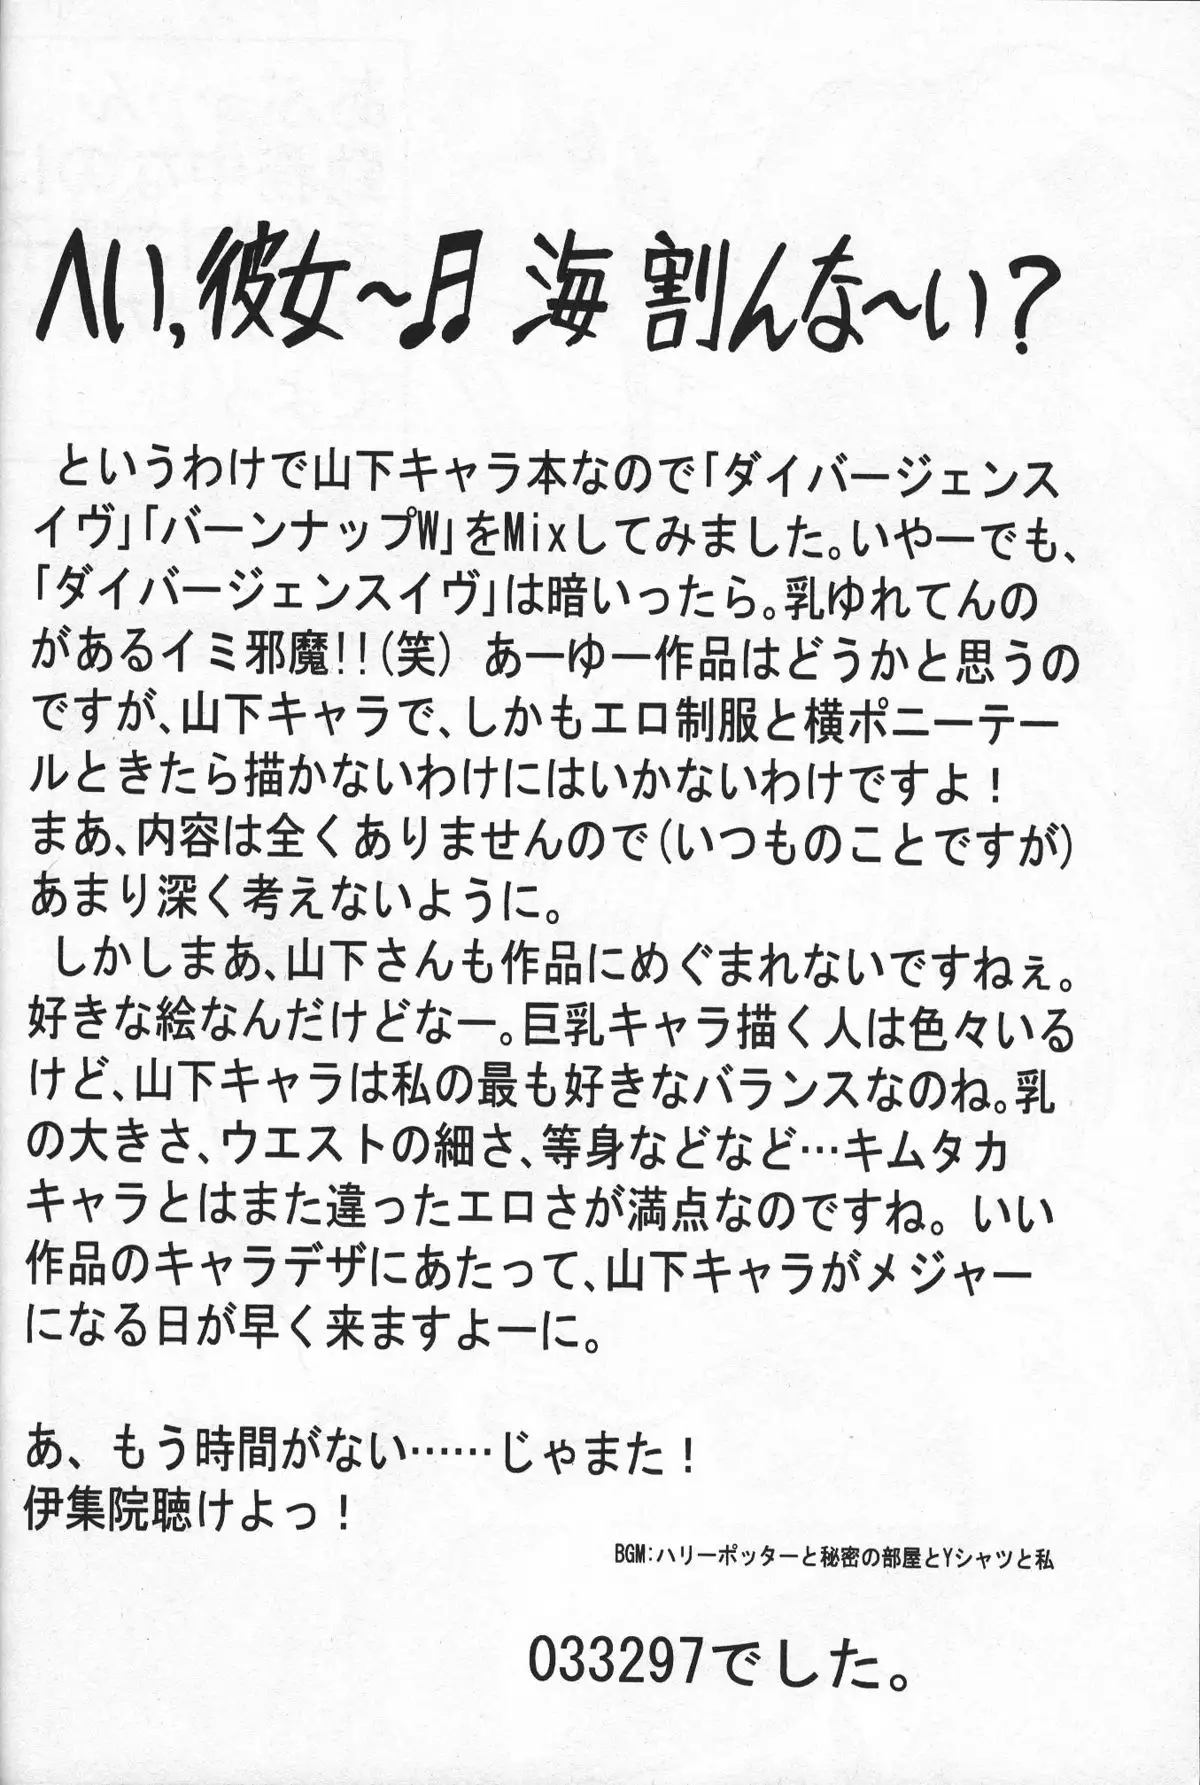 へい,彼女～♬ 海割んな～い？
というわけで山下キャラ本なので「ダイバージェンス
イヴ」「バーンナップW」をMixしてみました。いやーでも、
「ダイバージェンスイヴ」は暗いったら。乳ゆれてんの
があるイミ邪魔!!(笑) あーゆー作品はどうかと思うの
ですが、山下キャラで、しかもエロ制服と横ポニーテー
ルときたら描かないわけにはいかないわけですよ！
まあ、内容は全くありませんので(いつものことですが)
あまり深く考えないように。
しかしまあ、山下さんも作品にめぐまれないですねぇ。
好きな絵なんだけどなー。巨乳キャラ描く人は色々いる
けど、山下キャラは私の最も好きなバランスなのね。乳
の大きさ、ウエストの細さ、等身などなど…キムタカ
キャラとはまた違ったエロさが満点なのですね。いい
作品のキャラデザにあたって、山下キャラがメジャー
になる日が早く来ますよーに。
あ、もう時間がない……じゃまた！
伊集院聴けよっ！
BGM:ハリーポッターと秘密の部屋とYシャツと私
033297でした。